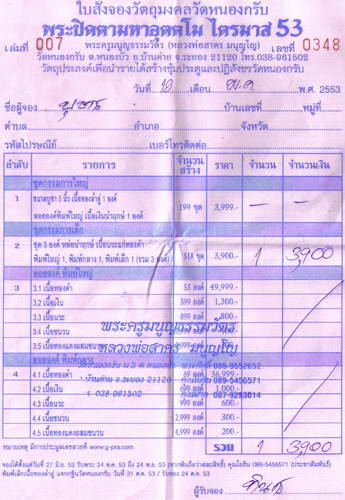 ใบสั่งจองวัตถุมงคลวัดหนองกรับ
พระปิดตามหาอุตตโม ไตรมาส 53
เล่มที่ 007 พระครูมนูญธรรมวัตร (หลวงพ่อสาคร มนุญโญ) เลขที่ 0348
วัดหนองกรับ ต.หนองบัว อ.บ้านค่าย จ.ระยอง 21120 โทร.038-961502
วัตถุประสงค์เพื่อนำรายได้สร้างซุ้มประตูและปฏิสังขรวัดหนองกรับ
วันที่ เดือน พ.ศ. 2553
ชื่อผู้จอง บ้านเลขที่ หมู่ที่
ตำบล อำเภอ จังหวัด
รหัสไปรษณีย์ เบอร์โทรติดต่อ
ลำดับ รายการ จำนวนสร้าง ราคา จำนวน จำนวนเงิน
ชุดกรรมการใหญ่
1 ขนาดบูชา 5 นิ้ว เนื้อทองลำอู่ 1 องค์ 199 ชุด 3,999.- — —
ลอยองค์พิมพ์ใหญ่ เนื้อเงินนำฤกษ์ 1 องค์
ชุดกรรมการเล็ก
2 ชุด 3 องค์ หล่อนำฤกษ์ เนื้อนวะแก่ทองคำ 518 ชุด 3,900.- 1 3,900
พิมพ์ใหญ่ 1, พิมพ์กลาง 1, พิมพ์เล็ก 1 (รวม 3 องค์)
ลอยองค์ พิมพ์ใหญ่
3 3.1 เนื้อทองคำ 53 องค์ 49,999.-
3.2 เนื้อเงิน 599 องค์ 1,300.-
3.3 เนื้อนวะ 899 องค์ 800.-
3.4 เนื้อชนวน
3.5 เนื้อทองแดงผสมชนวน
พระครูมนูญธรรมวัตร
หลวงพ่อสาคร มนุญโญ
วัดหนองกรับ ต.หนองบัว
บ้านค่าย จ.ระยอง 21120
โทร. 038-961502
ลอยองค์ พิมพ์กลาง
4 4.1 เนื้อทองคำ 69 องค์ 36,999.-
4.2 เนื้อเงิน
4.3 เนื้อนวะ 999 องค์ 600.-
4.4 เนื้อชนวน 2,999 องค์ 300.-
4.5 เนื้อทองแดงผสมชนวน 4,999 องค์ 200.-
หมายเหตุ มีการประมูลเลขสวยที่ www.g-pra.com รวม 1 3,900
จองได้ตั้งแต่วันที่ 27 มิ.ย. 53 รับพระ 24 ต.ค. 53 ถึง 24 พ.ย. 53
ผู้รับจอง